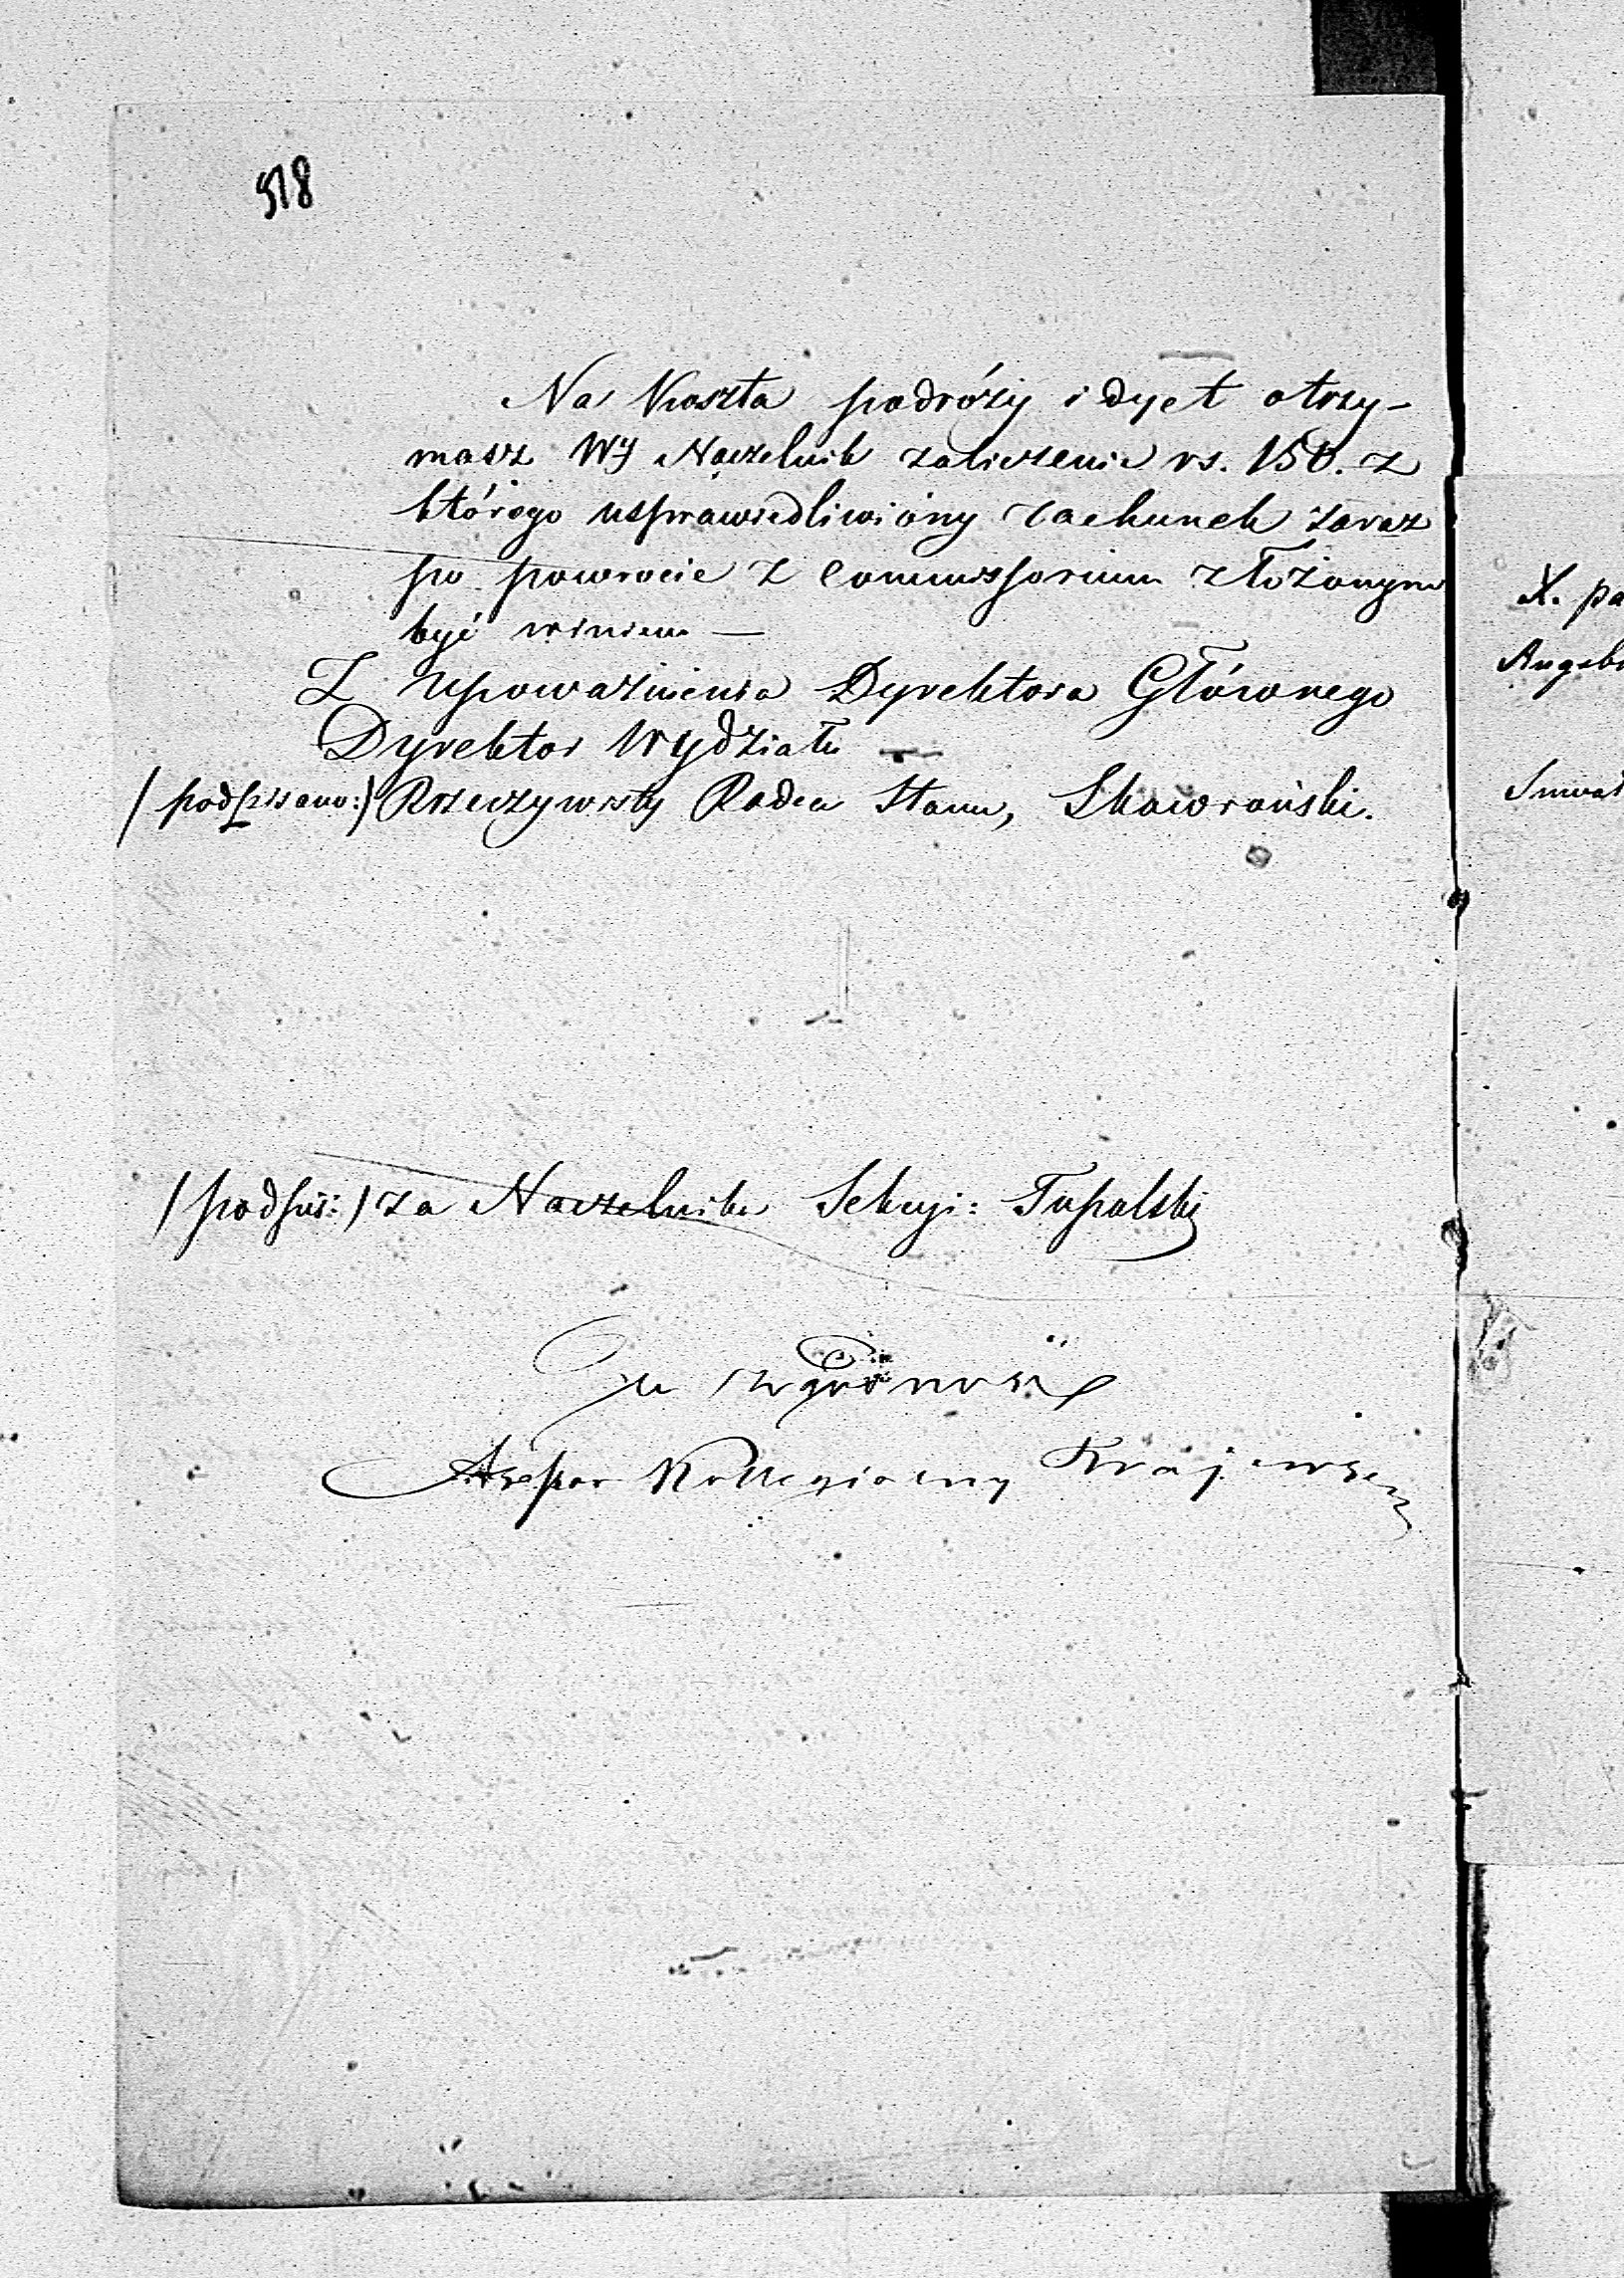 518
Na Koszta podróży i dyet otrzy-
masz WJ Naczelnik zaliczenie rs. 150. z
którego usprawiedliwiony rachunek zaraz
po powrocie z commissorium złożonym
być winien —
Z upoważnienia Dyrektora Głównego
Dyrektor Wydziału
/podpisano:/ Rzeczywisty Radca Stanu, Skowroński.
/podpis:/ za Naczelnika Sekcyi: Tupalski
Za zgodność
Assessor Kollegialny Krajewski
X. pa